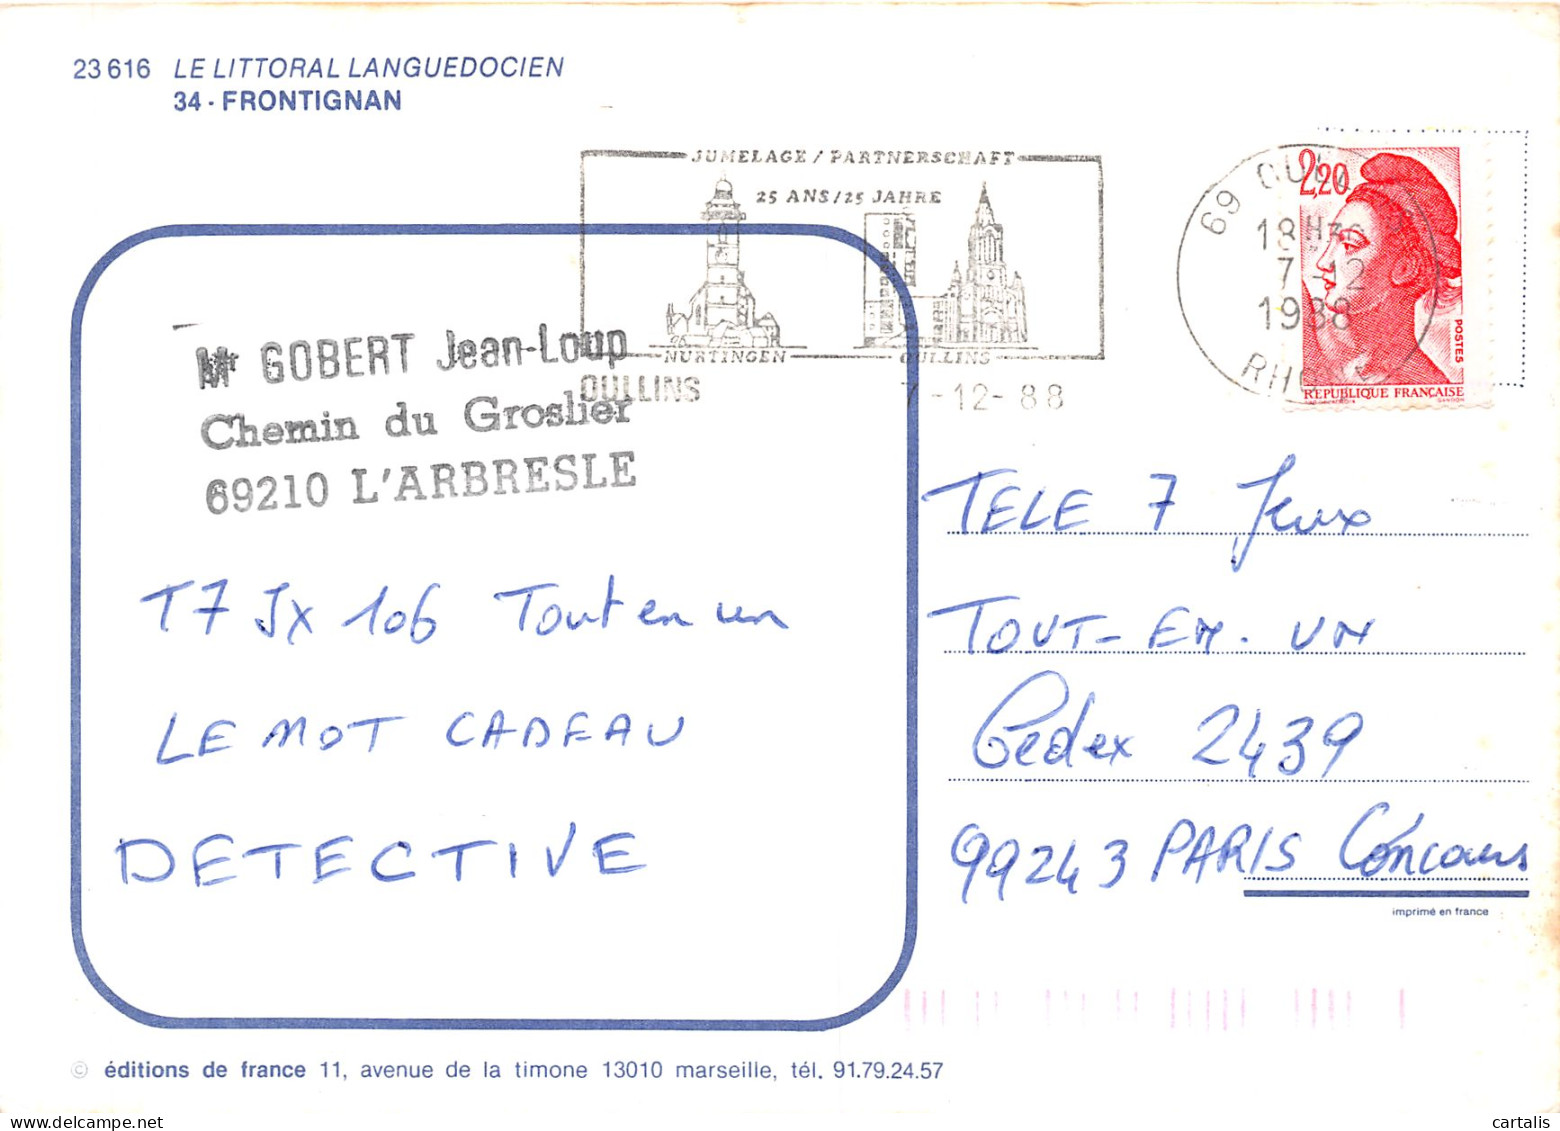 23 616 LE LITTORAL LANGUEDOCIEN
34 - FRONTIGNAN
JUMELAGE / PARTNERSCHAFT
25 ANS / 25 JAHRE
NURTINGEN OULLINS
OULLINS 7-12-88
69 OULLINS
18H30
7-12
1988
RHONE
2,20
POSTES
REPUBLIQUE FRANÇAISE
Mr GOBERT Jean-Loup
Chemin du Groslier
69210 L'ARBRESLE
T7 JX 106 Tout en un
LE MOT CADEAU
DETECTIVE
TELE 7 Jeux
TOUT-EN-UN
Cedex 2439
99243 PARIS Concours
imprimé en france
© éditions de france 11, avenue de la timone 13010 marseille, tél. 91.79.24.57
cartalis